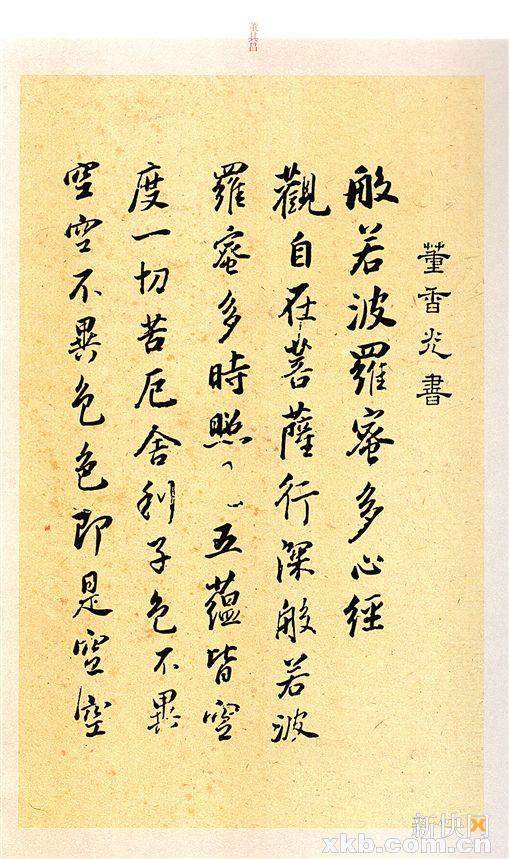 董其昌
董香光書
般若波羅蜜多心經
觀自在菩薩行深般若波
羅蜜多時照、、五蘊皆空
度一切苦厄舍利子色不異
空空不異色色即是空空
新快网
xkb.com.cn